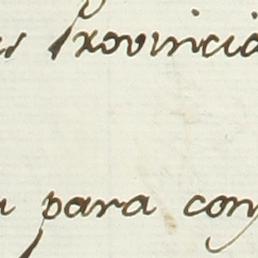 Provincia
para con